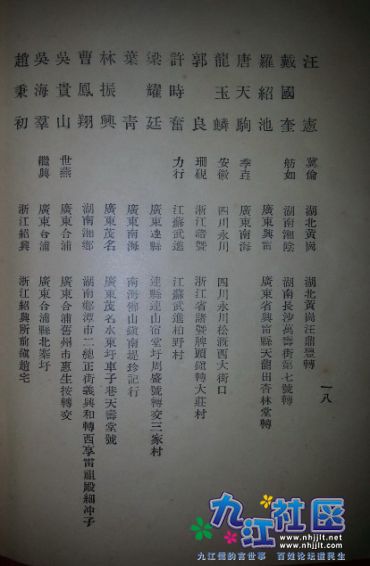 汪憲 冀倫 湖北黃岡 湖北黃岡汪鼎豐轉
戴國奎 舫如 湖南湘陰 湖南長沙萬壽街第七號轉
羅紹池 廣東興甯 廣東省興甯縣天龍田杏林堂轉
唐天駒 季直 廣東南海
龍玉麟 安徽 四川永川 四川永川松漑西大街口
郭良 珊硯 浙江諸暨 浙江省諸暨牌頭鎮轉大莊村
許時奮 力行 江蘇武進 江蘇武進柏野村
梁耀廷 廣東連縣 連縣連山宿堂圩周盛號轉交三家村
葉青 廣東南海 南海佛山鎮南堤珍記行
林振興 廣東茂名 廣東茂名水東圩車子巷天壽堂號
曹鳳翔 湖南湘鄉 湖南湘潭市二總正街義興和轉西享雷祖殿細沖子
吳貴山 世燕 廣東合浦 廣東合浦舊州市惠生按轉交
吳海羣 繼興 廣東合浦 廣東合浦縣北寨圩
趙秉初 浙江紹興 浙江紹興所前鎮趙宅
一八
九江社区
www.nhjjlt.com
www.nhjjlt.net
九江儒的言世事 百姓论坛道民生